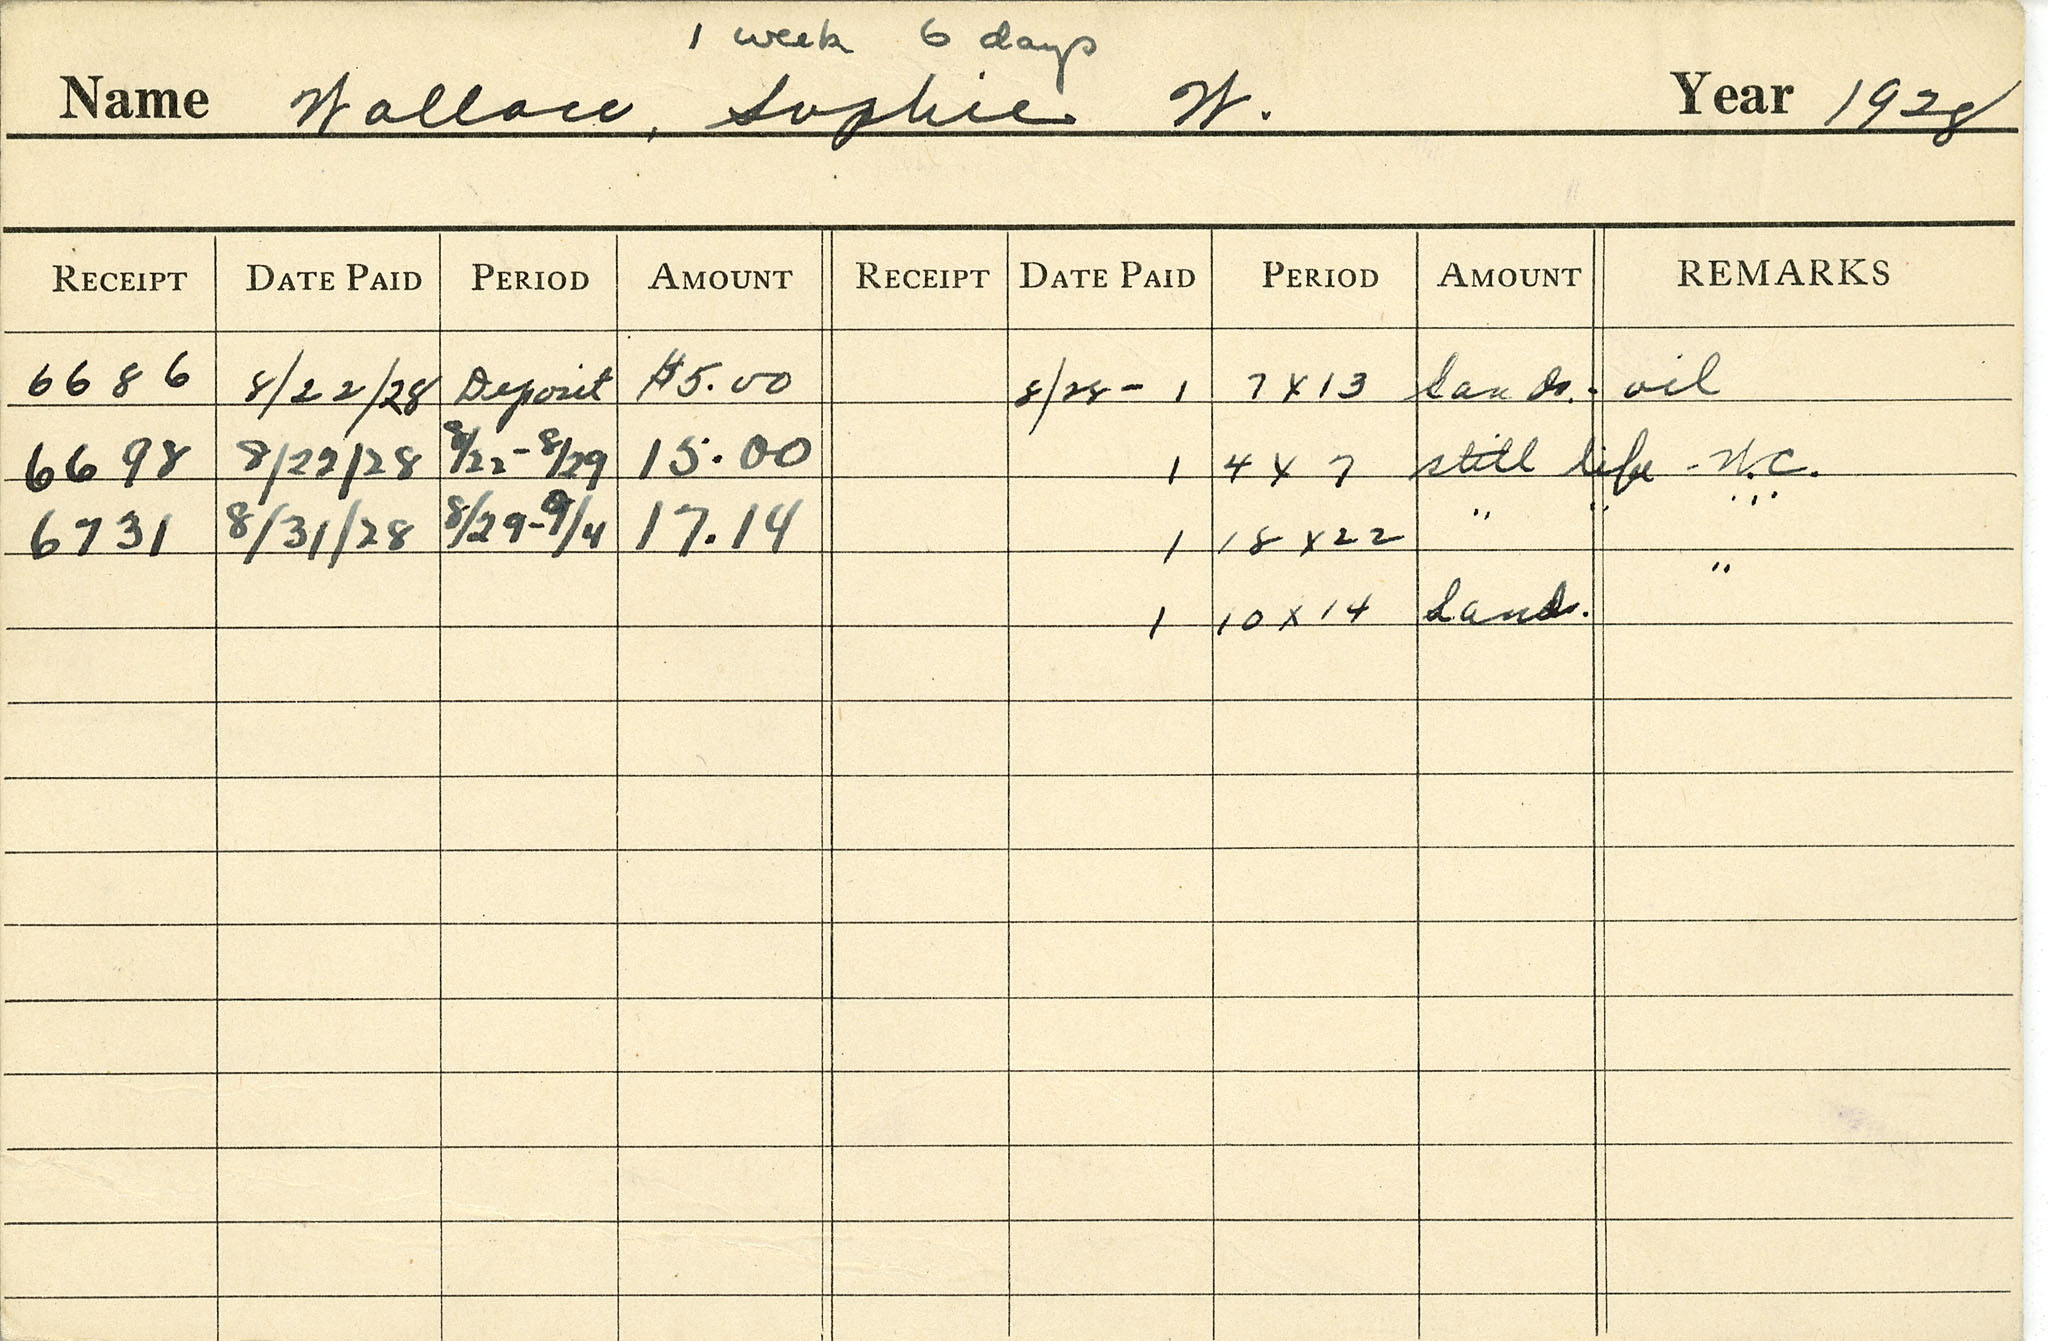 1 week 6 days
Name Wallace, Sophie W. Year 1928
RECEIPT DATE PAID PERIOD AMOUNT RECEIPT DATE PAID PERIOD AMOUNT REMARKS
6686 8/22/28 Deposit $5.00 8/28 - 1 7 x 13 Lands. - oil
6698 8/22/28 8/22-8/29 15.00 1 4 x 7 still life - W.C.
6731 8/31/28 8/29-9/4 17.14 1 18 x 22 " " "
1 10 x 14 Lands. "